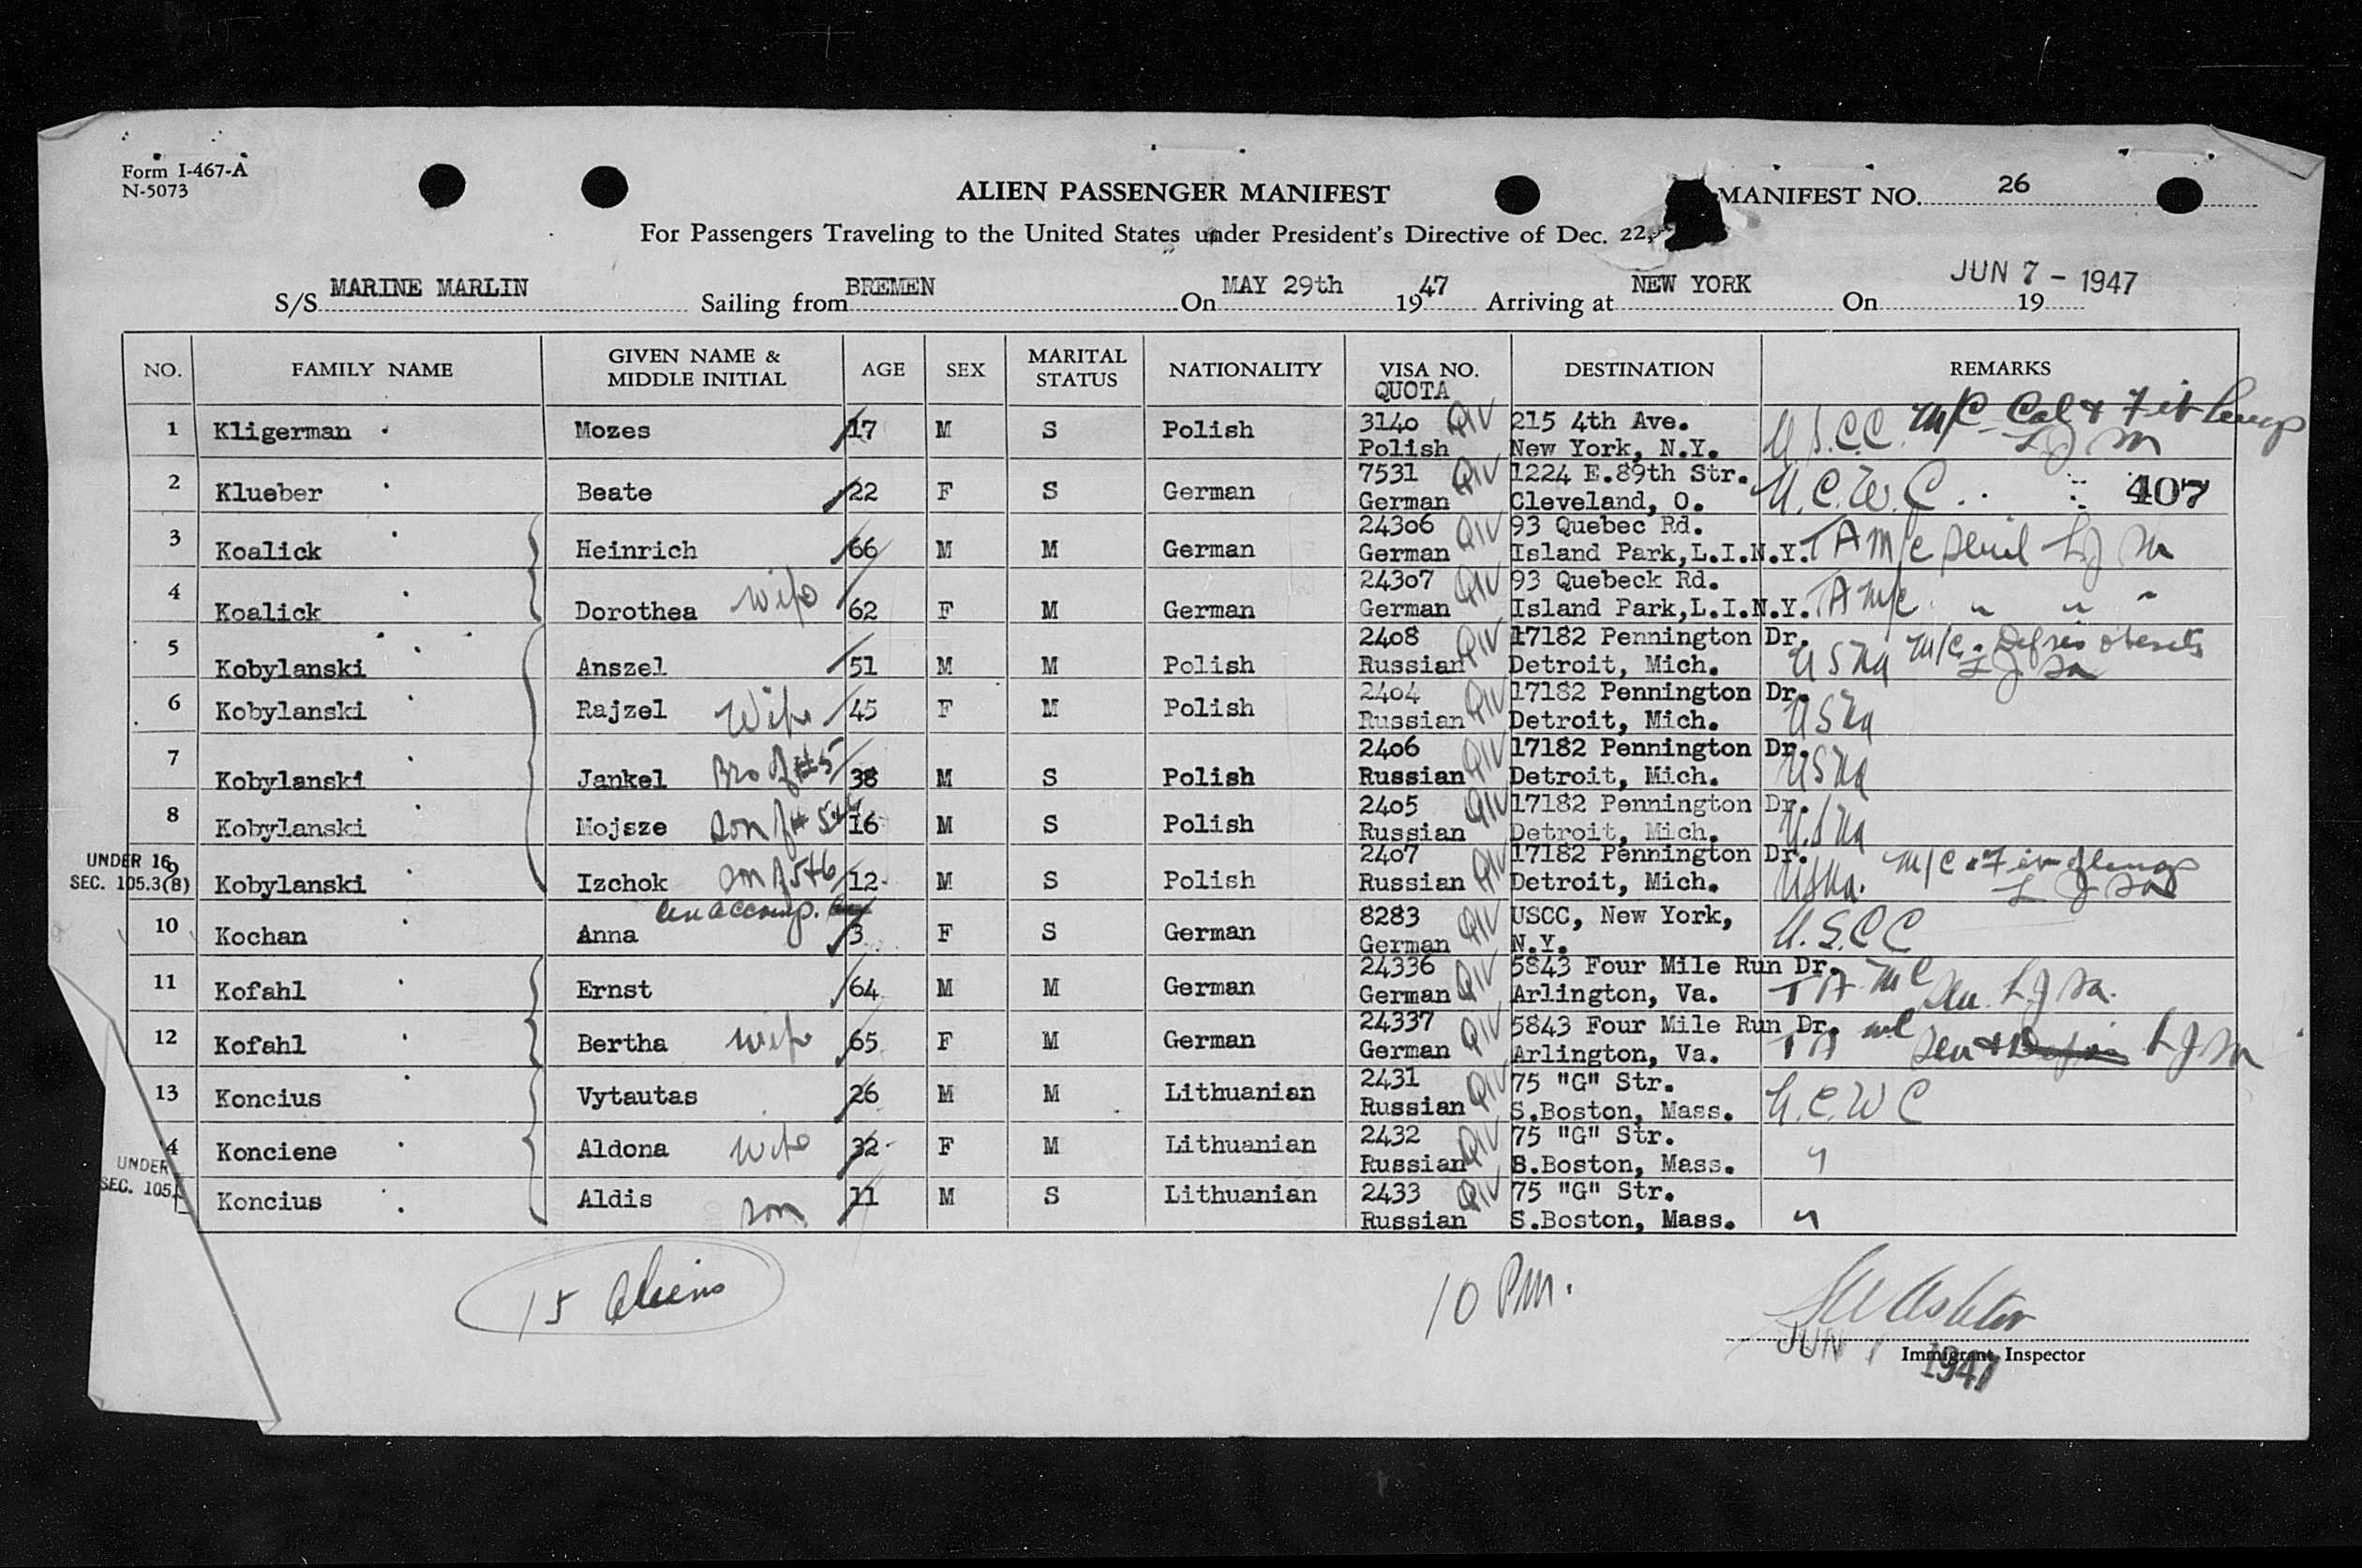 Form I-467-A
N-5073
ALIEN PASSENGER MANIFEST
MANIFEST NO. 26
For Passengers Traveling to the United States under President's Directive of Dec. 22,
S/S MARINE MARLIN Sailing from BREMEN On MAY 29th 1947 Arriving at NEW YORK On JUN 7 - 1947 19
NO. FAMILY NAME GIVEN NAME & MIDDLE INITIAL AGE SEX MARITAL STATUS NATIONALITY VISA NO. QUOTA DESTINATION REMARKS
1 Kligerman Mozes 17 M S Polish 3140 QIV 215 4th Ave. U.S.C.C. M/C
Polish New York, N.Y. LJM
2 Klueber Beate 22 F S German 7531 QIV 1224 E.89th Str. U.C.W.C. 407
German Cleveland, O.
3 Koalick Heinrich 66 M M German 24306 QIV 93 Quebec Rd. TA M/C LJM
German Island Park,L.I.N.Y.
4 Koalick Dorothea wife 62 F M German 24307 QIV 93 Quebeck Rd. TA M/C " " "
German Island Park,L.I.N.Y.
5 Kobylanski Anszel 51 M M Polish 2408 QIV 17182 Pennington Dr. USNA M/C
Russian Detroit, Mich. LJM
6 Kobylanski Rajzel Wife 45 F M Polish 2404 QIV 17182 Pennington Dr. USNA
Russian Detroit, Mich.
7 Kobylanski Jankel Bro of #5 38 M S Polish 2406 QIV 17182 Pennington Dr. USNA
Russian Detroit, Mich.
8 Kobylanski Mojsze son of # 5+6 16 M S Polish 2405 QIV 17182 Pennington Dr. USNA
Russian Detroit, Mich.
UNDER 16
SEC. 105.3(B)
9 Kobylanski Izchok son of 5+6 12 M S Polish 2407 QIV 17182 Pennington Dr. USNA. M/C
Russian Detroit, Mich. LJM
unaccomp.
10 Kochan Anna 3 F S German 8283 QIV USCC, New York, U.S.C.C
German N.Y.
11 Kofahl Ernst 64 M M German 24336 QIV 5843 Four Mile Run Dr. TA MC Sen. LJM
German Arlington, Va.
12 Kofahl Bertha wife 65 F M German 24337 QIV 5843 Four Mile Run Dr. TA MC Sen LJM
German Arlington, Va.
13 Koncius Vytautas 26 M M Lithuanian 2431 QIV 75 "G" Str. U.C.W C
Russian S.Boston, Mass.
4 Konciene Aldona wife 32 F M Lithuanian 2432 QIV 75 "G" Str. "
Russian S.Boston, Mass.
UNDER
SEC. 105.
Koncius Aldis son 11 M S Lithuanian 2433 QIV 75 "G" Str. "
Russian S.Boston, Mass.
15 Aliens
10 PM.
JUN 7 1947
Immigrant Inspector